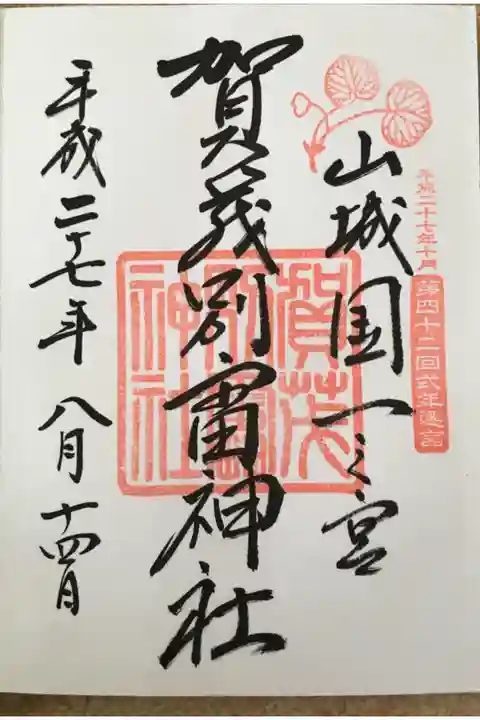 平成二十七年十月
第四十二回式年遷宮
山城国一之宮
賀茂別雷神社
賀茂別雷神社
平成二十七年八月十四日